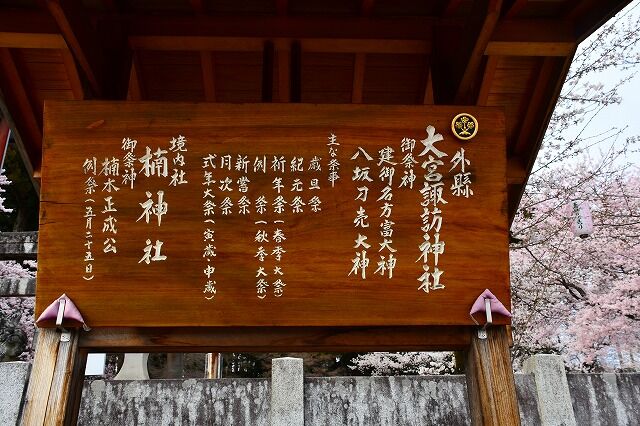 外縣
大宮諏訪神社
御祭神
建御名方富大神
八坂刀売大神
主な祭事
歳旦祭
紀元祭
祈年祭（春季大祭）
例祭（秋季大祭）
新嘗祭
月次祭
式年大祭（寅歳・申歳）
境内社
楠神社
御祭神
楠木正成公
例祭（五月二十五日）